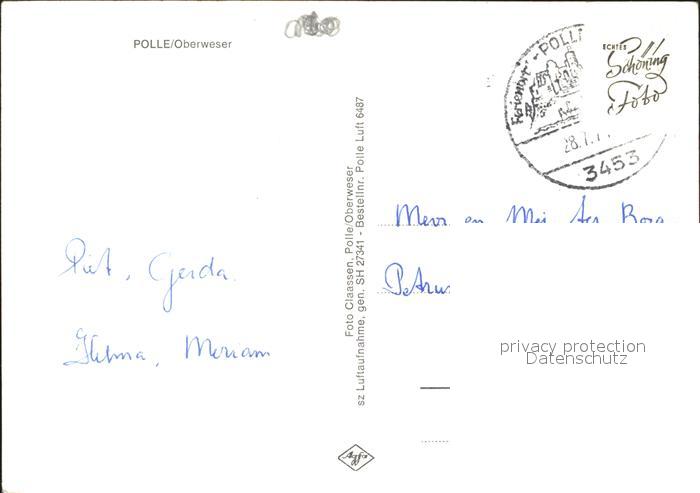 POLLE/Oberweser
POLLE
28.7.7
3453
ECHTES
Schöning
Foto
Foto Claassen, Polle/Oberweser
sz Luftaufnahme, gen. SH 27341 - Bestellnr. Polle Luft 6487
Mevr en
Piet, Gerda.
Petrus
privacy protection
Datenschutz
Agfa